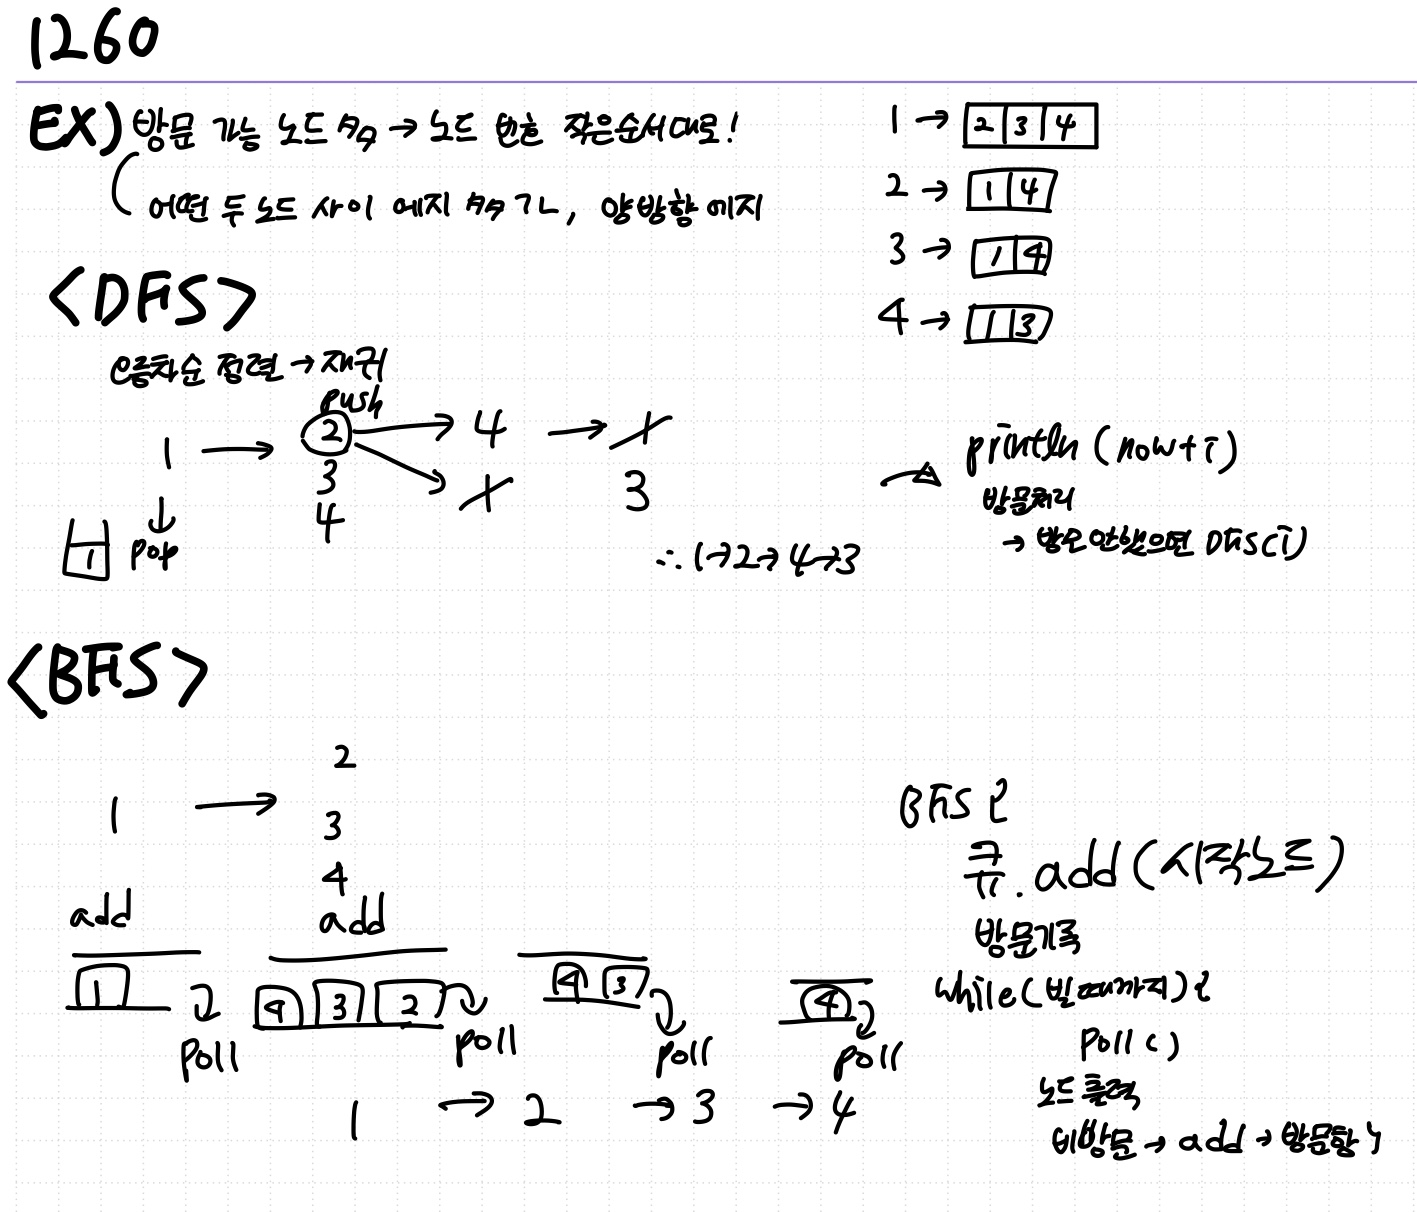 1260
EX) 방문 가능 노드 多 → 노드 번호 작은순서대로!
어떤 두 노드 사이 에지 多 가능, 양방향 에지
1 → 2 3 4
2 → 1 4
3 → 1 4
4 → 1 3
<DFS>
오름차순 정렬 → 재귀
push
1 → 2 → 4 → 1
3 1 3
4
1 pop
∴ 1→2→4→3
println (now + i)
방문처리
→ 방문안했으면 DFS(i)
<BFS>
2
1 → 3
4
add add
1 4 3 2 4 3 4
poll poll poll poll
1 → 2 → 3 → 4
BFS {
큐.add (시작노드)
방문기록
while(빌 때까지) {
poll ()
노드 출력
비방문 → add → 방문함 }